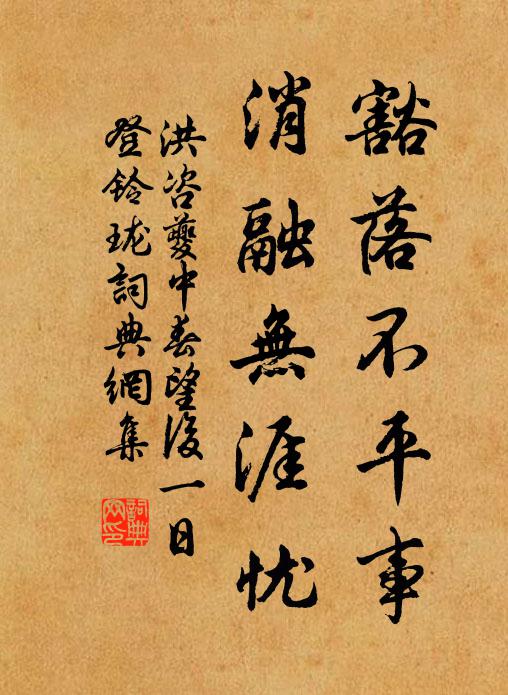 豁落不平事
消融無涯忧
洪咨夔中春望後一日
登铃珑詞典網集
詞典网印